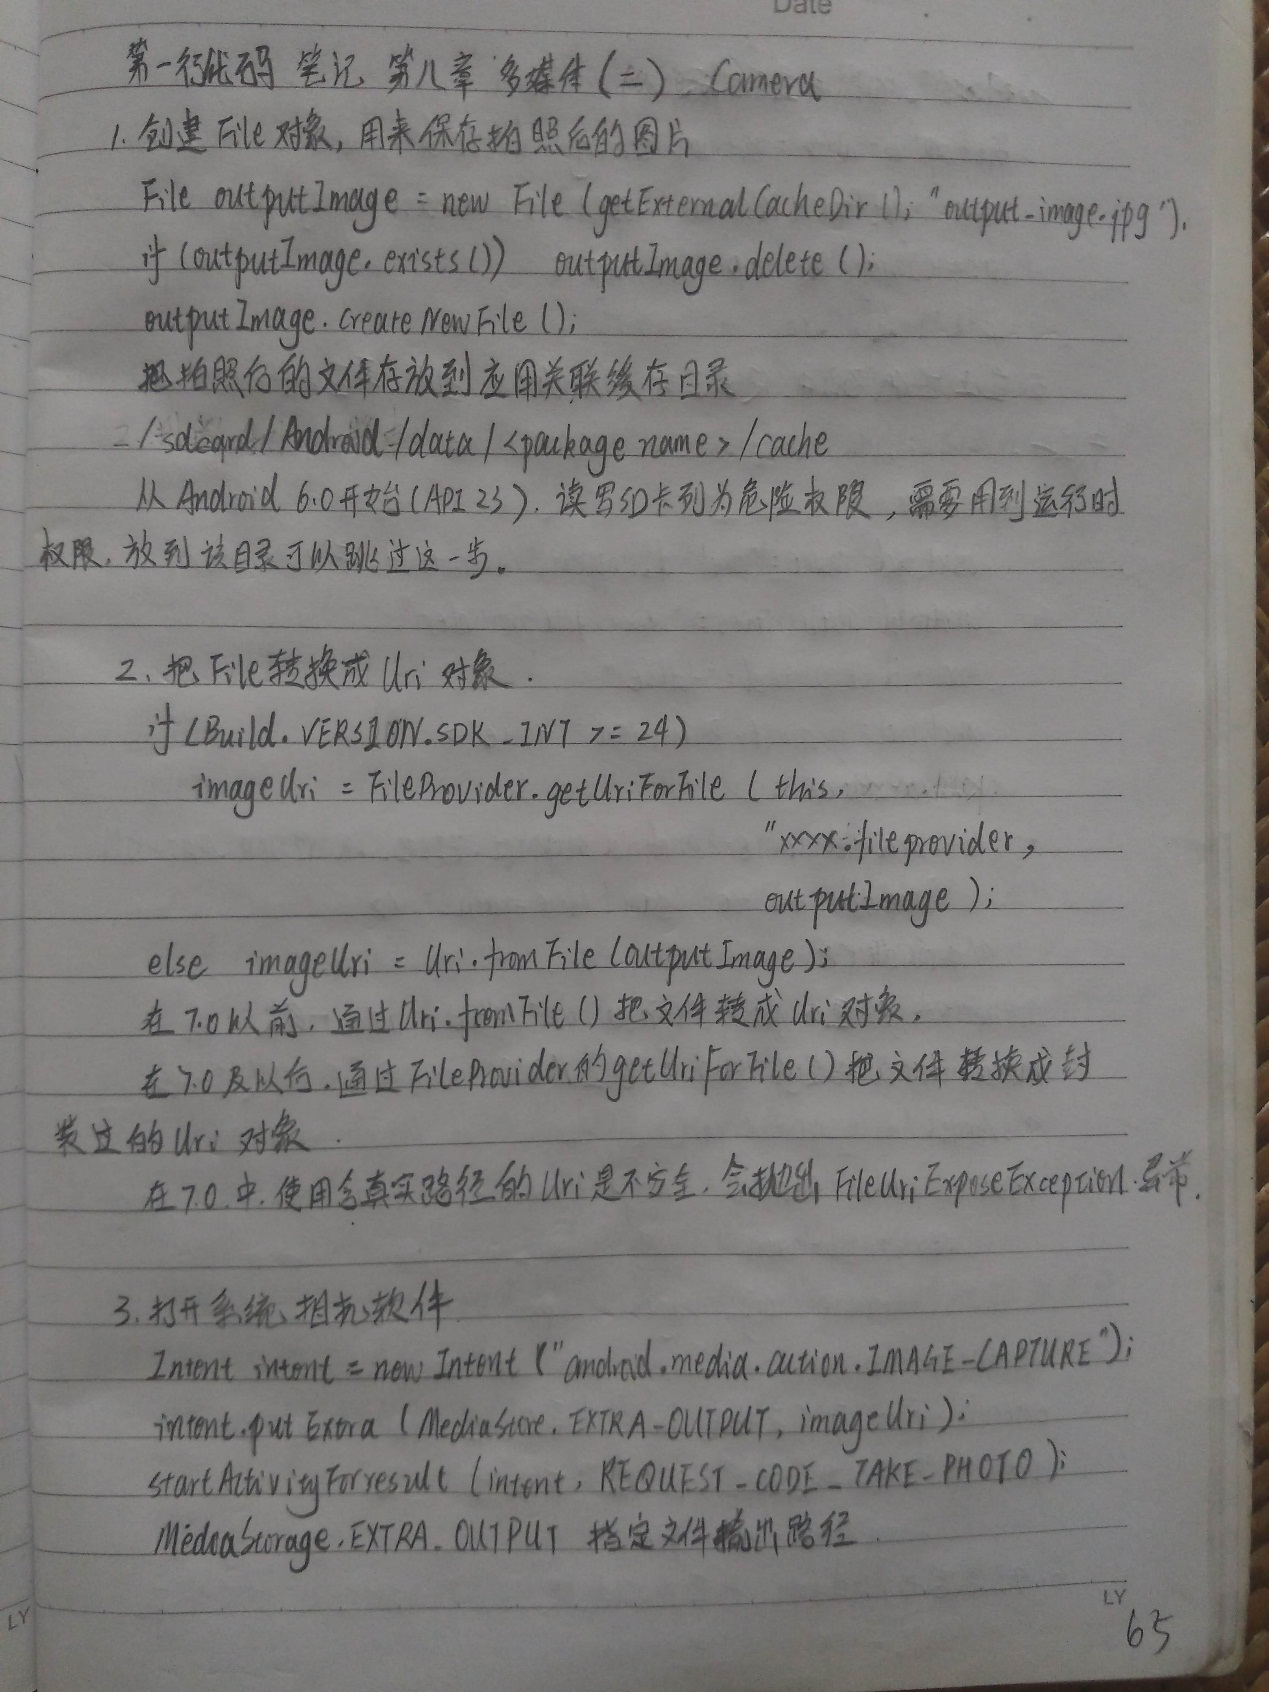 Date
第一行代码 笔记 第八章 多媒体(二) Camera
1. 创建File对象,用来保存拍照后的图片
File outputImage = new File (getExternalCacheDir(); "output_image.jpg");
if (outputImage.exists()) outputImage.delete();
outputImage.createNewFile();
把拍照后的文件存放到应用关联缓存目录
/sdcard/Android/data/<package name>/cache
从 Android 6.0开始(API 23). 读写SD卡列为危险权限,需要用到运行时
权限,放到该目录可以跳过这一步。
2. 把File转换成Uri对象.
if (Build.VERSION.SDK_INT >= 24)
imageUri = FileProvider.getUriForFile (this,
"xxxx.fileprovider,
outputImage);
else imageUri = Uri.fromFile(outputImage);
在7.0以前,通过Uri.fromFile()把文件转成Uri对象.
在7.0及以后.通过FileProvider的getUriForFile()把文件转换成封
装过的Uri对象.
在7.0.中.使用含真实路径的Uri是不安全.会抛出FileUriExposeException.异常.
3. 打开系统相机软件
Intent intent = new Intent ("android.media.action.IMAGE_CAPTURE");
intent.putExtra (MediaStore.EXTRA_OUTPUT, imageUri);
startActivityForresult (intent, REQUEST_CODE_TAKE_PHOTO);
MediaStorage.EXTRA_OUTPUT 指定文件输出路径.
LY
LY
65